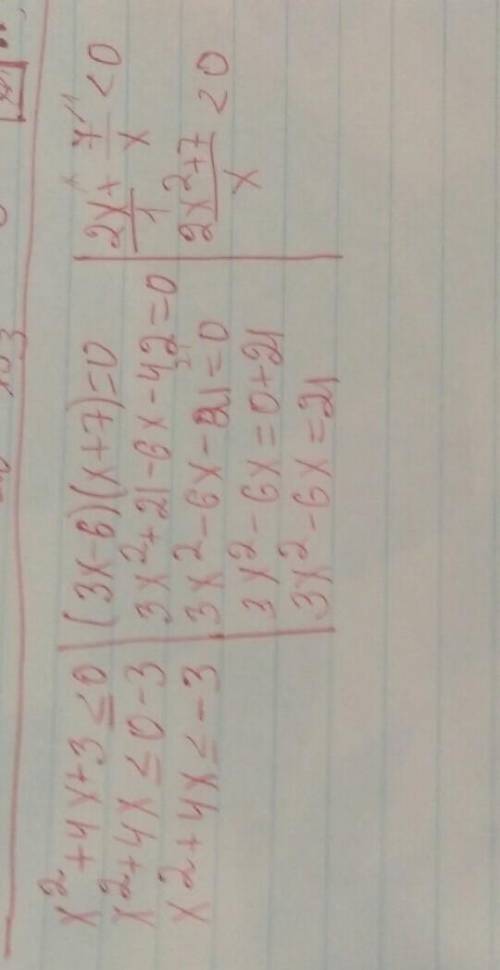 x² + 4x + 3 ≤ 0
x² + 4x ≤ 0 - 3
x² + 4x ≤ -3
(3x - 6)(x + 7) = 0
3x² + 21 - 6x - 42 = 0
3x² - 6x - 21 = 0
3x² - 6x = 0 + 21
3x² - 6x = 21
2x/1 + 7/x < 0
2x² + 7/x < 0